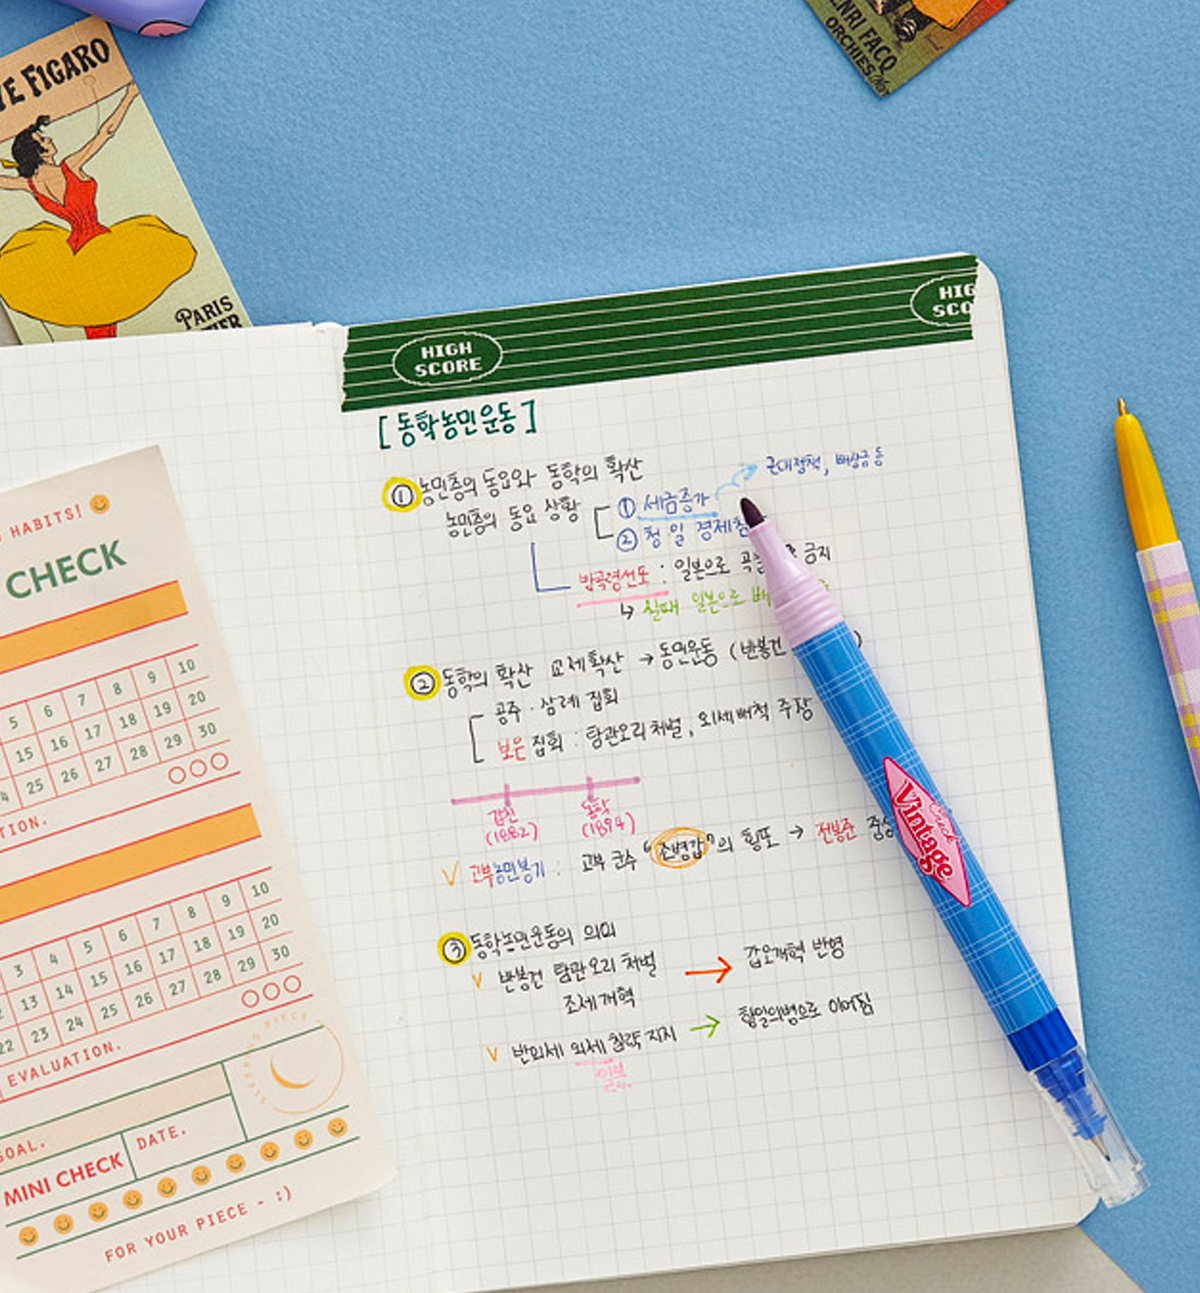 VE FIGARO
PARIS
HENRI FACQ
ORCHIES
HIGH
SCORE
HIG
SCO
[동학농민운동]
① 농민층의 동요와 동학의 확산
농민층의 동요 상황
① 세금증가
근대정책, 배상금 등
② 청 일 경제침
방곡령선포 : 일본으로 곡 금지
↳ 실패 일본으로 배
② 동학의 확산 교세확산 → 농민운동 (반봉건 )
공주·삼례 집회
보은 집회 : 탐관오리 처벌, 외세배척 주장
갑신
(1882)
동학
(1894)
V 고부농민봉기 : 고부 군수 "조병갑"의 횡포 → 전봉준 중심
③ 동학농민운동의 의의
V 반봉건 탐관오리 처벌 → 갑오개혁 반영
조세개혁
V 반외세 외세 침략 저지 → 항일의병으로 이어짐
Vintage
HABITS!
CHECK
5 6 7 8 9 10
15 16 17 18 19 20
24 25 26 27 28 29 30
TION.
3 4 5 6 7 8 9 10
12 13 14 15 16 17 18 19 20
22 23 24 25 26 27 28 29 30
EVALUATION.
GOAL.
MINI CHECK
DATE.
FOR YOUR PIECE - ;)